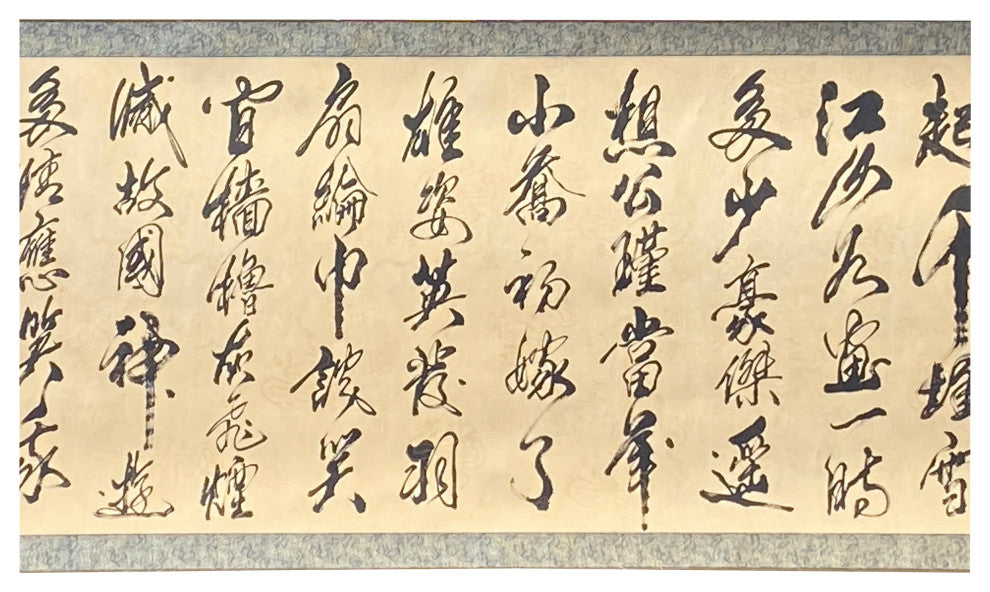 起千堆雪
江山如畫一時
多少豪傑遙
想公瑾當年
小喬初嫁了
雄姿英發羽
扇綸巾談笑
間檣櫓灰飛煙
滅故國神遊
多情應笑我